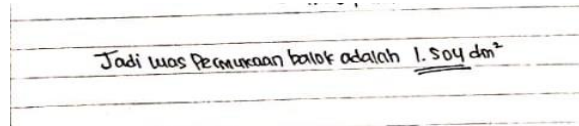 Jadi luas Permukaan balok adalah 1.504 dm²